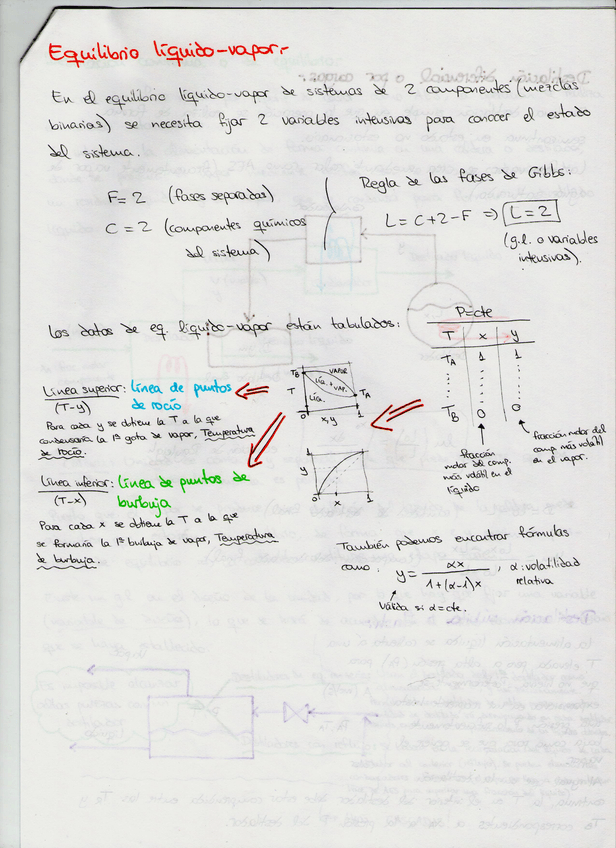 Equilibrio líquido-vapor.-
En el equilibrio líquido-vapor de sistemas de 2 componentes (mezclas
binarias) se necesita fijar 2 variables intensivas para conocer el estado
del sistema.
F=2 (fases separadas)
C=2 (componentes químicos
del sistema)
Regla de las fases de Gibbs:
L = C+2-F => L=2
(g.l. o variables
intensivas).
Los datos de eq. líquido-vapor están tabulados:
P=cte
T x y
TA 1 1
TB 0 0
fracción
molar del comp.
más volátil en el
líquido
fracción molar del
comp. más volátil
en el vapor.
TB
T
VAPOR
LÍQ. + VAP.
LÍQ.
TA
0 x,y 1
1
y
0 x 1
Línea superior: Línea de puntos
(T-y) de rocío
Para cada y se obtiene la T a la que
condensaría la 1ª gota de vapor, Temperatura
de rocío.
Línea inferior: Línea de puntos de
(T-x) burbuja
Para cada x se obtiene la T a la que
se formaría la 1ª burbuja de vapor, Temperatura
de burbuja.
También podemos encontrar fórmulas
como: y = αx / 1+(α-1)x , α: volatilidad
relativa
Válida si α=cte.